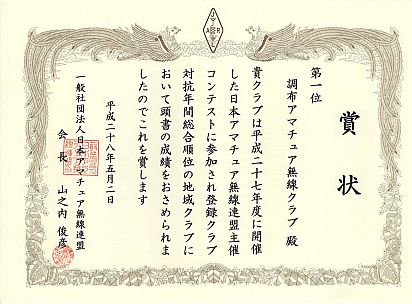 賞状
第一位
調布アマチュア無線クラブ 殿
貴クラブは平成二十七年度に開催
した日本アマチュア無線連盟主催
コンテストに参加され登録クラブ
対抗年間総合順位の地域クラブに
おいて頭書の成績をおさめられま
したのでこれを賞します
平成二十八年五月二日
一般社団法人日本アマチュア無線連盟
会長 山之内俊彦